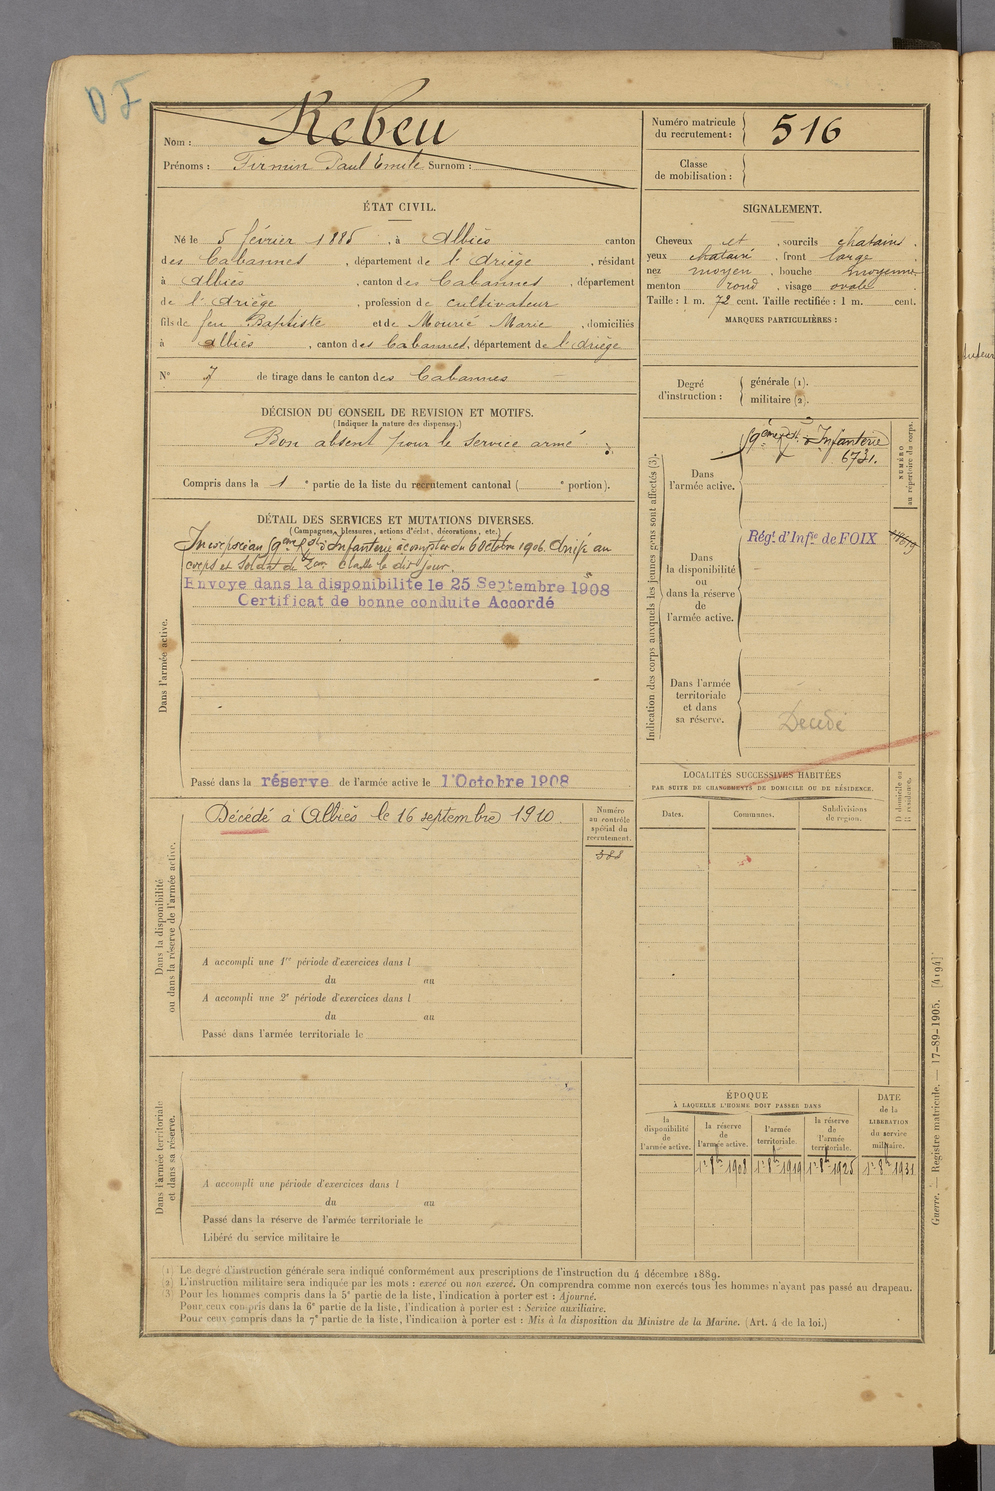 DF
Nom : Rebeu
Prénoms : Firmin Paul Emile Surnom :
Numéro matricule du recrutement : 516
Classe de mobilisation :
ÉTAT CIVIL.
Né le 5 février 1885, à Albiès canton
des Cabannes, département de l'Ariège, résidant
à Albiès, canton des Cabannes, département
de l'Ariège, profession de cultivateur
fils de feu Baptiste et de Mourié Marie, domiciliés
à Albiès, canton des Cabannes, département de l'Ariège
N° 7 de tirage dans le canton des Cabannes
SIGNALEMENT.
Cheveux et, sourcils chatains,
yeux chatain, front large
nez moyen, bouche moyenne,
menton rond, visage ovale
Taille : 1 m. 72 cent. Taille rectifiée : 1 m. cent.
MARQUES PARTICULIÈRES :
Degré d'instruction : générale (1).
militaire (2).
DÉCISION DU CONSEIL DE REVISION ET MOTIFS.
(Indiquer la nature des dispenses.)
Bon absent pour le service armé
Compris dans la 1e partie de la liste du recrutement cantonal ( e portion).
DÉTAIL DES SERVICES ET MUTATIONS DIVERSES.
(Campagnes, blessures, actions d'éclat, décorations, etc.)
Dans l'armée active.
Incorporé au 59ème Rgt d'Infanterie à compter du 6 Octobre 1906. Arrivé au
corps et soldat de 2eme classe le dit jour.
Envoyé dans la disponibilité le 25 Septembre 1908
Certificat de bonne conduite Accordé
Passé dans la réserve de l'armée active le 1 Octobre 1908
Indication des corps auxquels les jeunes gens sont affectés (3).
NUMÉRO au répertoire du corps.
Dans l'armée active.
59ème Rgt d'Infanterie
6731.
Dans la disponibilité ou dans la réserve de l'armée active.
Rég.t d'Inf.ie de FOIX
Dans l'armée territoriale et dans sa réserve.
Décédé
Dans la disponibilité ou dans la réserve de l'armée active.
Décédé à Albiès le 16 septembre 1910.
Numéro au contrôle spécial du recrutement.
A accompli une 1re période d'exercices dans l
du au
A accompli une 2e période d'exercices dans l
du au
Passé dans l'armée territoriale le
LOCALITÉS SUCCESSIVES HABITÉES
PAR SUITE DE CHANGEMENTS DE DOMICILE OU DE RÉSIDENCE.
Dates. Communes. Subdivisions de region. D domicile ou R résidence.
Dans l'armée territoriale et dans sa réserve.
A accompli une période d'exercices dans l
du au
Passé dans la réserve de l'armée territoriale le
Libéré du service militaire le
ÉPOQUE
À LAQUELLE L'HOMME DOIT PASSER DANS
la disponibilité de l'armée active. la réserve de l'armée active. l'armée territoriale. la réserve de l'armée territoriale.
DATE de la LIBERATION du service militaire.
1er 8bre 1908 1er 8bre 1919 1er 8bre 1925 1er 8bre 1931
(1) Le degré d'instruction générale sera indiqué conformément aux prescriptions de l'instruction du 4 décembre 1889.
(2) L'instruction militaire sera indiquée par les mots : exercé ou non exercé. On comprendra comme non exercés tous les hommes n'ayant pas passé au drapeau.
(3) Pour les hommes compris dans la 5e partie de la liste, l'indication à porter est : Ajourné.
Pour ceux compris dans la 6e partie de la liste, l'indication à porter est : Service auxiliaire.
Pour ceux compris dans la 7e partie de la liste, l'indication à porter est : Mis à la disposition du Ministre de la Marine. (Art. 4 de la loi.)
Guerre. — Registre matricule. — 17-89-1905. [4194]